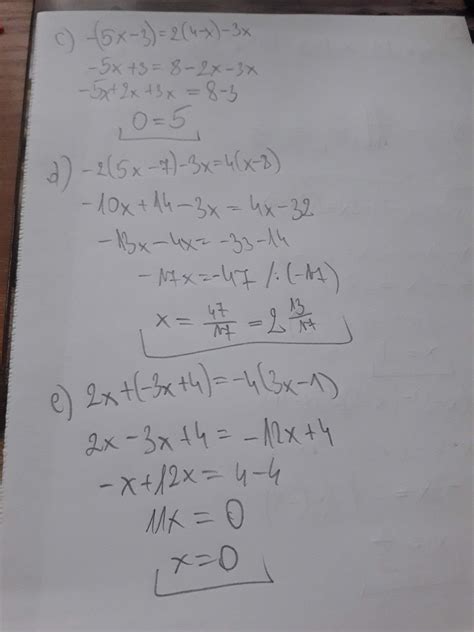 c) -(5x-3)=2(4-x)-3x
-5x+3=8-2x-3x
-5x+2x+3x=8-3
0=5
d) -2(5x-7)-3x=4(x-8)
-10x+14-3x=4x-32
-13x-4x=-33-14
-17x=-47 /:(-17)
x=47/17=2 13/17
e) 2x+(-3x+4)=-4(3x-1)
2x-3x+4=-12x+4
-x+12x=4-4
11x=0
x=0